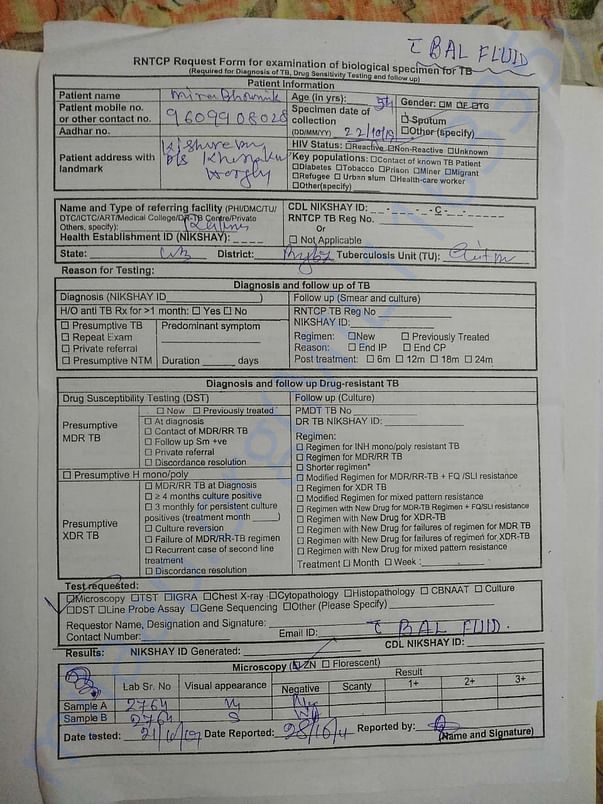 BAL FLUID
RNTCP Request Form for examination of biological specimen for TB
(Required for Diagnosis of TB, Drug Sensitivity Testing and follow up)
Patient Information
Patient name Mira Bhowmik Age (in yrs): 54 Gender: ☐M ☐F ☐TG
Patient mobile no. or other contact no. 9609908028
Specimen date of collection (DD/MM/YY) 22/10/19
☐Sputum
☐Other (specify)
Aadhar no.
HIV Status: ☐Reactive ☐Non-Reactive ☐Unknown
Patient address with landmark
Key populations: ☐Contact of known TB Patient
☐Diabetes ☐Tobacco ☐Prison ☐Miner ☐Migrant
☐Refugee ☐Urban slum ☐Health-care worker
☐Other(specify)
Name and Type of referring facility (PHI/DMC/TU/
DTC/ICTC/ART/Medical College/DR-TB Centre/Private
Others, specify):
Health Establishment ID (NIKSHAY):
CDL NIKSHAY ID: _ _ - _ _ _ - _ - C - _ _
RNTCP TB Reg No.
Or
☐ Not Applicable
State: WB District: Tuberculosis Unit (TU):
Reason for Testing:
Diagnosis and follow up of TB
Diagnosis (NIKSHAY ID____) Follow up (Smear and culture)
H/O anti TB Rx for >1 month: ☐ Yes ☐ No
☐ Presumptive TB
☐ Repeat Exam
☐ Private referral
☐ Presumptive NTM
Predominant symptom
Duration ____ days
RNTCP TB Reg No
NIKSHAY ID:
Regimen: ☐New ☐ Previously Treated
Reason: ☐ End IP ☐ End CP
Post treatment: ☐ 6m ☐ 12m ☐ 18m ☐ 24m
Diagnosis and follow up Drug-resistant TB
Drug Susceptibility Testing (DST) Follow up (Culture)
Presumptive MDR TB
☐ New ☐ Previously treated
☐ At diagnosis
☐ Contact of MDR/RR TB
☐ Follow up Sm +ve
☐ Private referral
☐ Discordance resolution
☐ Presumptive H mono/poly
Presumptive XDR TB
☐ MDR/RR TB at Diagnosis
☐ ≥ 4 months culture positive
☐ 3 monthly for persistent culture
positives (treatment month ____)
☐ Culture reversion
☐ Failure of MDR/RR-TB regimen
☐ Recurrent case of second line
treatment
☐ Discordance resolution
PMDT TB No
DR TB NIKSHAY ID:
Regimen:
☐ Regimen for INH mono/poly resistant TB
☐ Regimen for MDR/RR TB
☐ Shorter regimen*
☐ Modified Regimen for MDR/RR-TB + FQ /SLI resistance
☐ Regimen for XDR TB
☐ Modified Regimen for mixed pattern resistance
☐ Regimen with New Drug for MDR-TB Regimen + FQ/SLI resistance
☐ Regimen with New Drug for XDR-TB
☐ Regimen with New Drug for failures of regimen for MDR TB
☐ Regimen with New Drug for failures of regimen for XDR-TB
☐ Regimen with New Drug for mixed pattern resistance
Treatment ☐ Month ☐ Week :
Test requested:
☐Microscopy ☐TST ☐IGRA ☐Chest X-ray ☐Cytopathology ☐Histopathology ☐ CBNAAT ☐ Culture
☐DST ☐Line Probe Assay ☐Gene Sequencing ☐Other (Please Specify)
Requestor Name, Designation and Signature:
Contact Number: Email ID: BAL FLUID.
Results: NIKSHAY ID Generated: CDL NIKSHAY ID:
Microscopy (☑ZN ☐ Florescent)
Lab Sr. No Visual appearance Result
Negative Scanty 1+ 2+ 3+
Sample A 2764
Sample B 2764 S
Date tested: Date Reported: Reported by:
(Name and Signature)